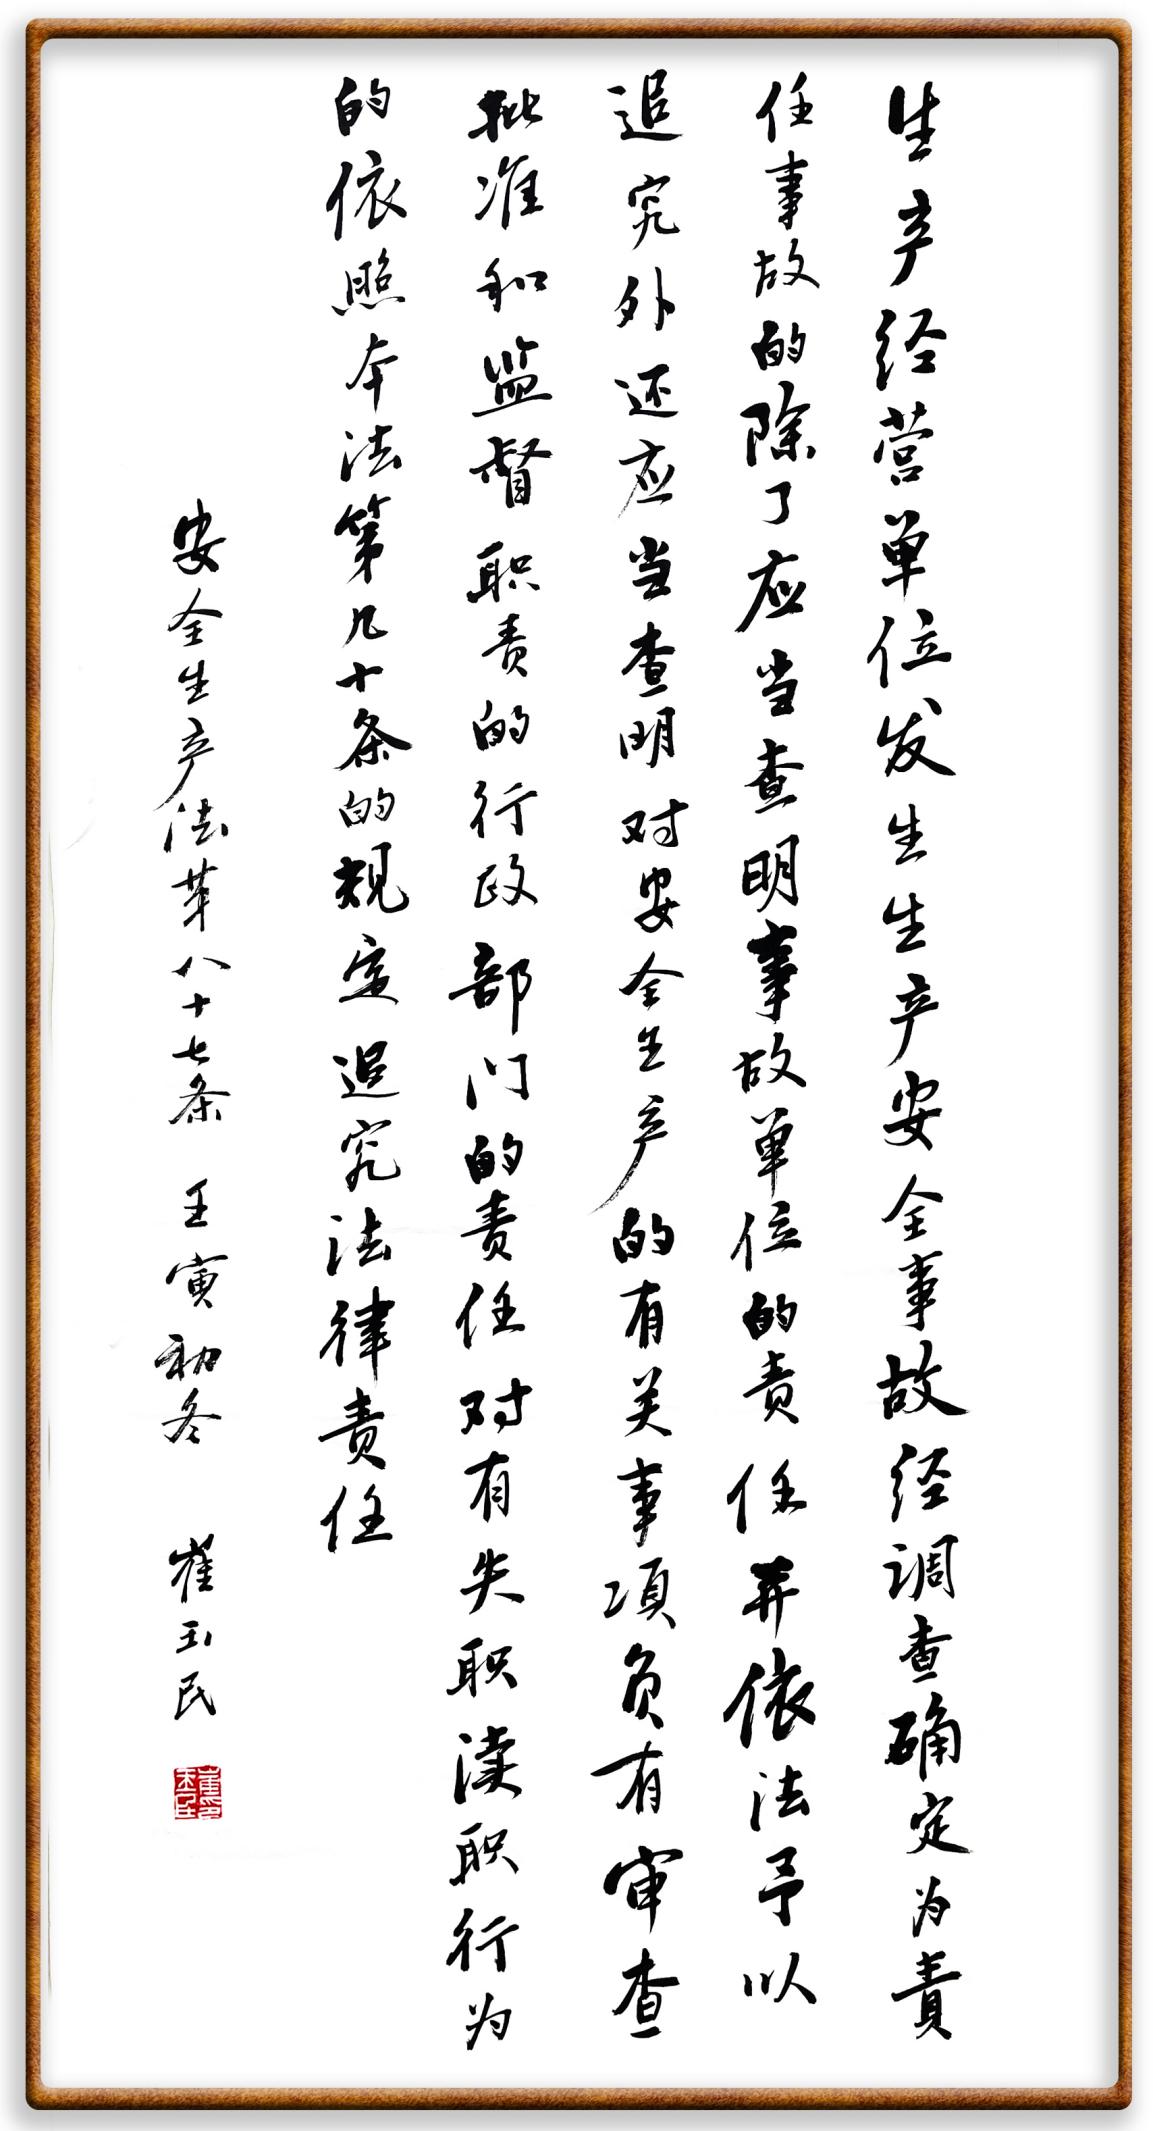 生产经营单位发生生产安全事故经调查确定为责
任事故的除了应当查明事故单位的责任并依法予以
追究外还应当查明对安全生产的有关事项负有审查
批准和监督职责的行政部门的责任对有失职渎职行为
的依照本法第九十条的规定追究法律责任
安全生产法第八十七条 王寅初冬 崔玉民